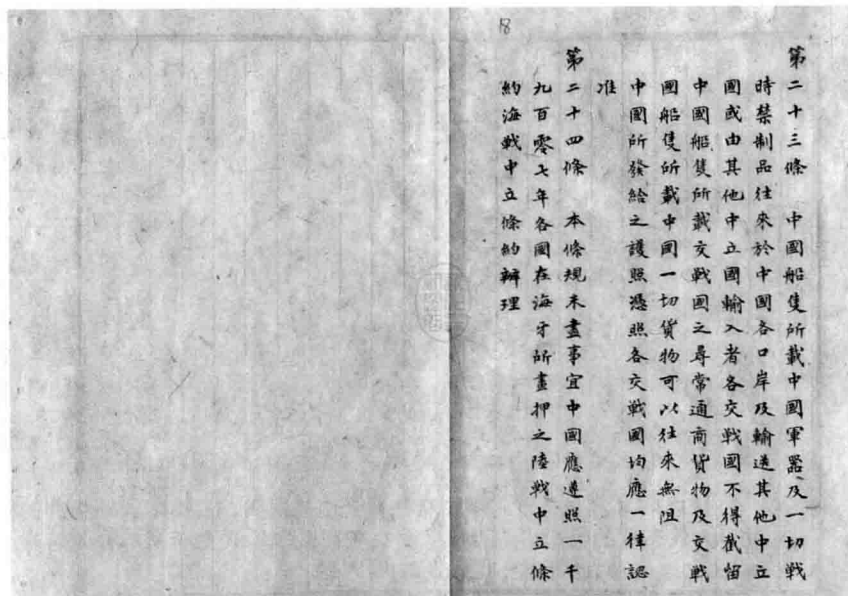 18
第二十三條　中國船隻所載中國軍器及一切戰
時禁制品往來於中國各口岸及輸送其他中立
國或由其他中立國輸入者各交戰國不得截留
中國船隻所載交戰國之尋常通商貨物及交戰
國船隻所載中國一切貨物可以往來無阻
中國所發給之護照憑照各交戰國均應一律認
准
第二十四條　本條規未盡事宜中國應遵照一千
九百零七年各國在海牙所畫押之陸戰中立條
約海戰中立條約辦理